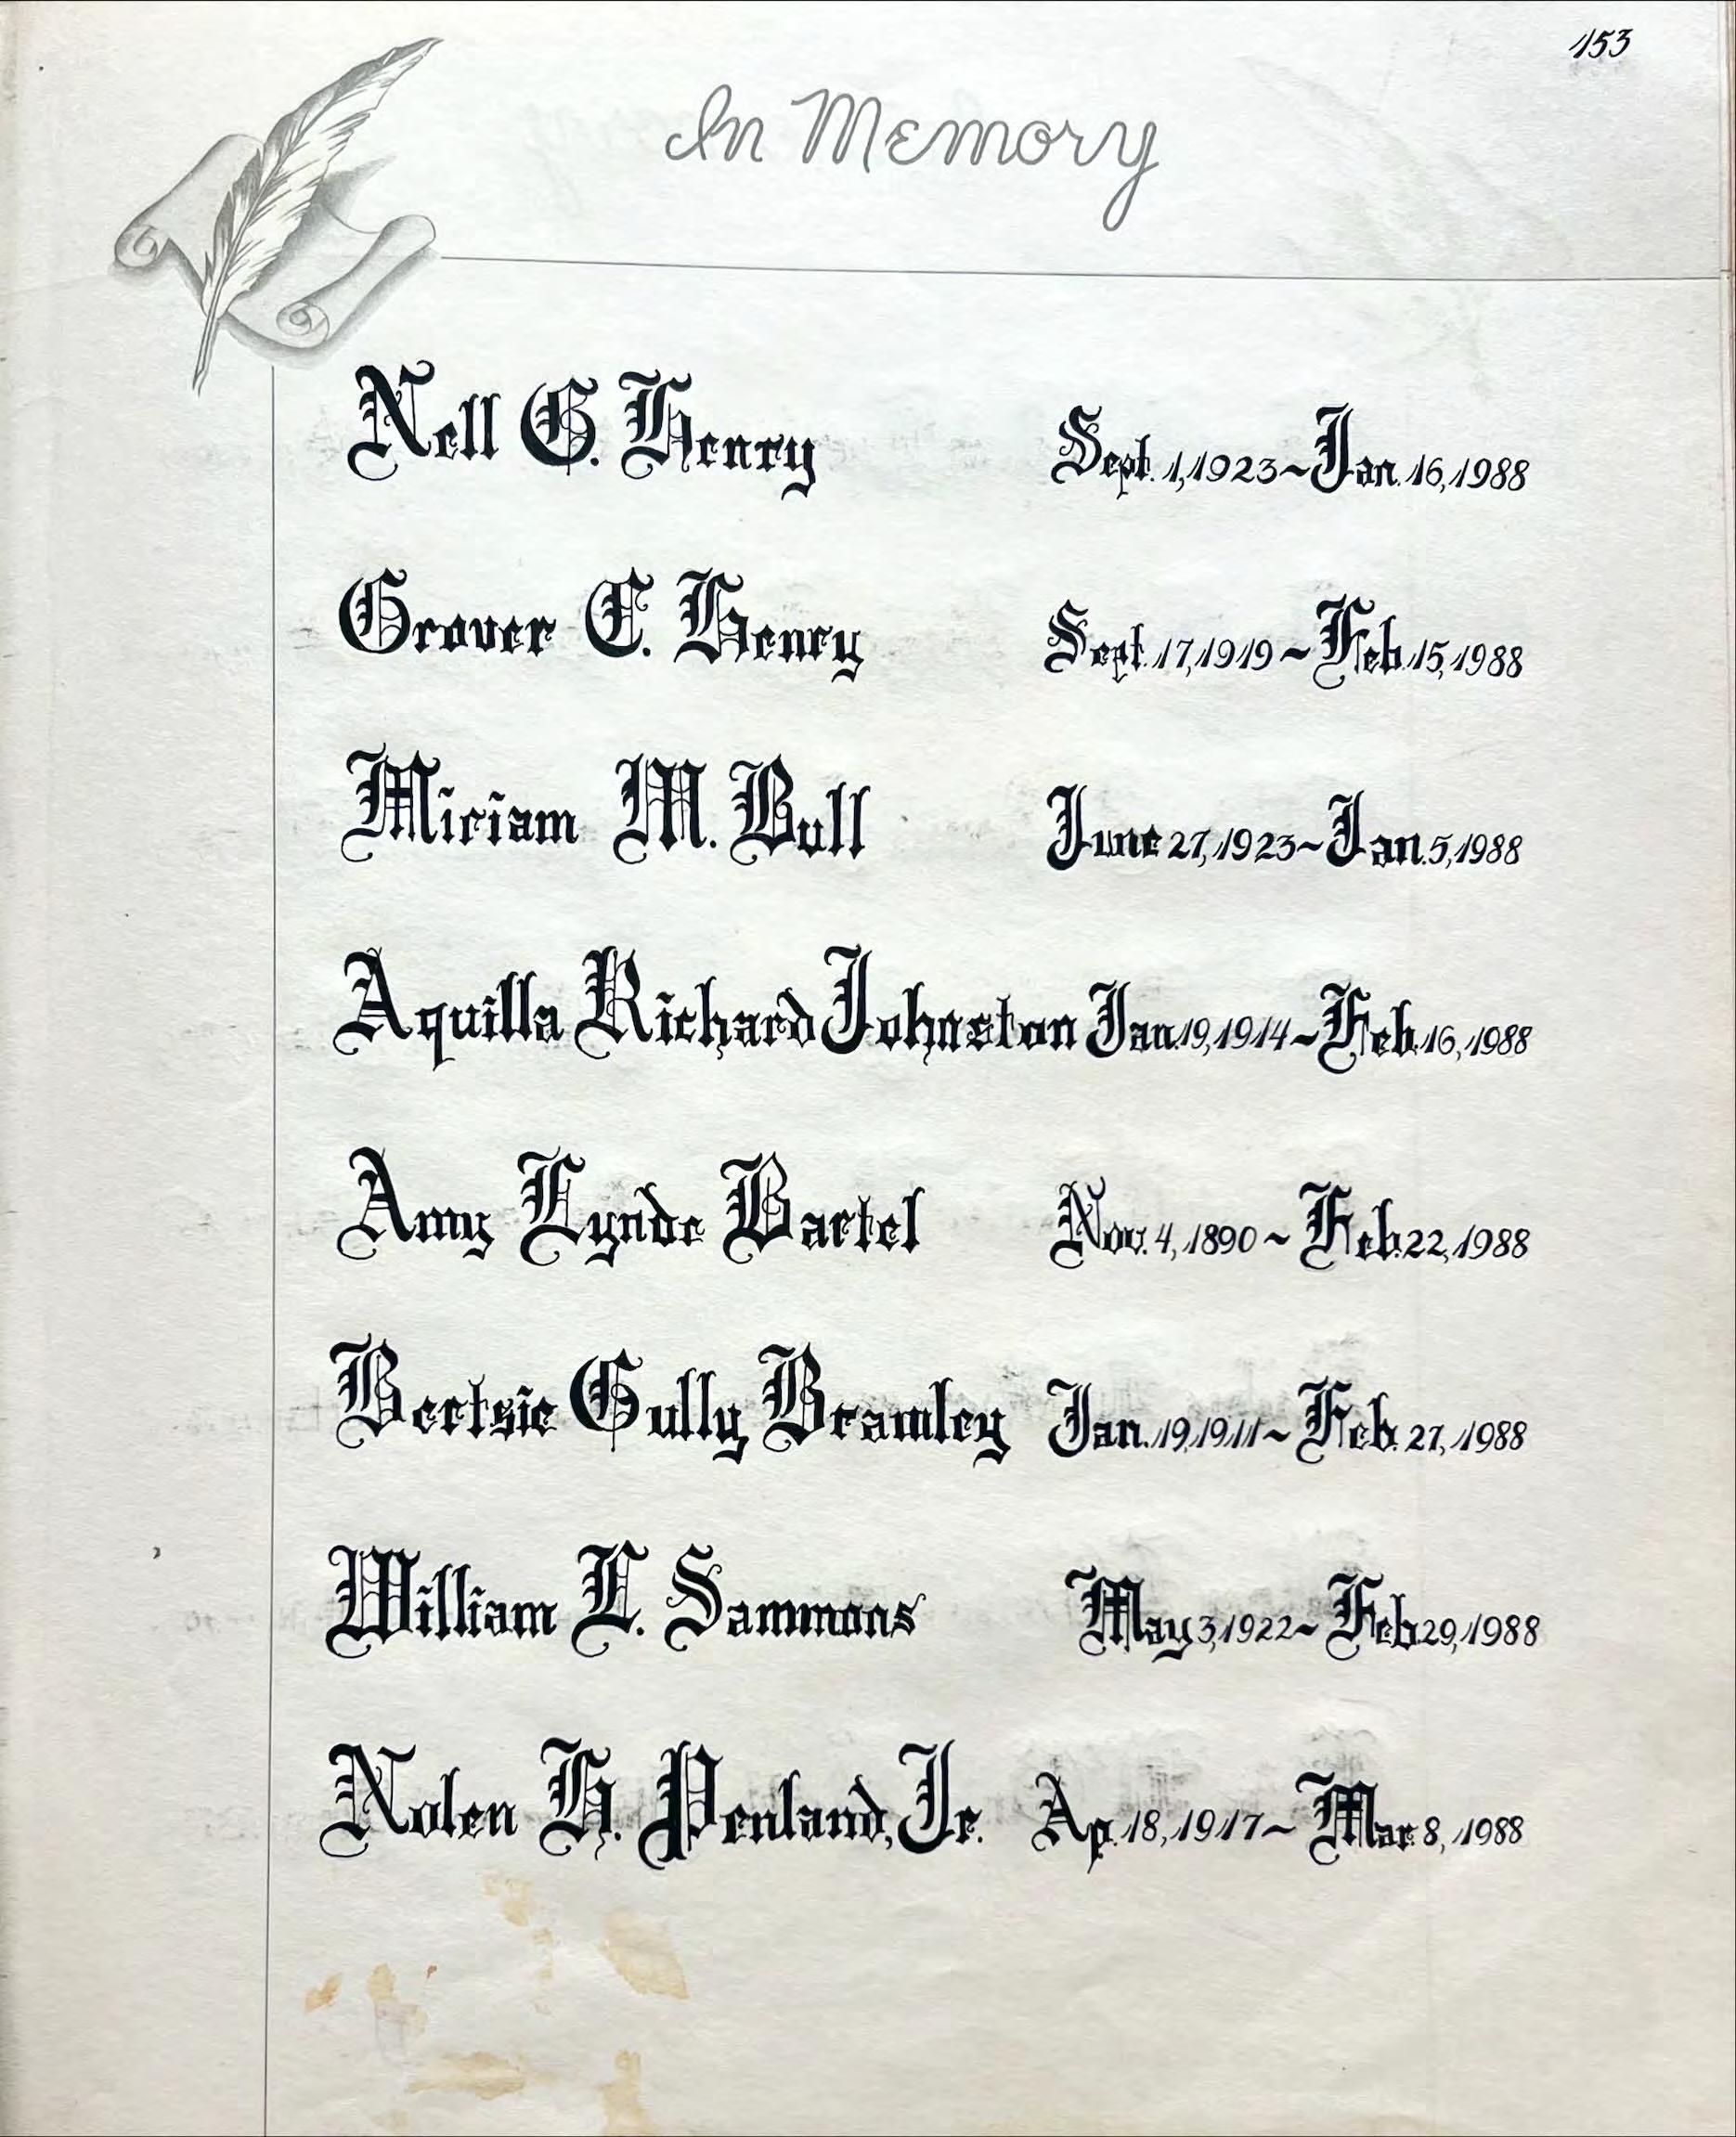 153
In Memory
Nell G. Henry Sept. 1, 1923 ~ Jan. 16, 1988
Grover C. Henry Sept. 17, 1919 ~ Feb. 15, 1988
Miriam M. Bull June 27, 1923 ~ Jan. 5, 1988
Aquilla Richard Johnston Jan. 19, 1914 ~ Feb. 16, 1988
Amy Lynde Bartel Nov. 4, 1890 ~ Feb. 22, 1988
Bertsie Gully Bramley Jan. 19, 1911 ~ Feb. 27, 1988
William L. Sammons May 3, 1922 ~ Feb 29, 1988
Nolen H. Penland, Jr. Ap. 18, 1917 ~ Mar. 8, 1988